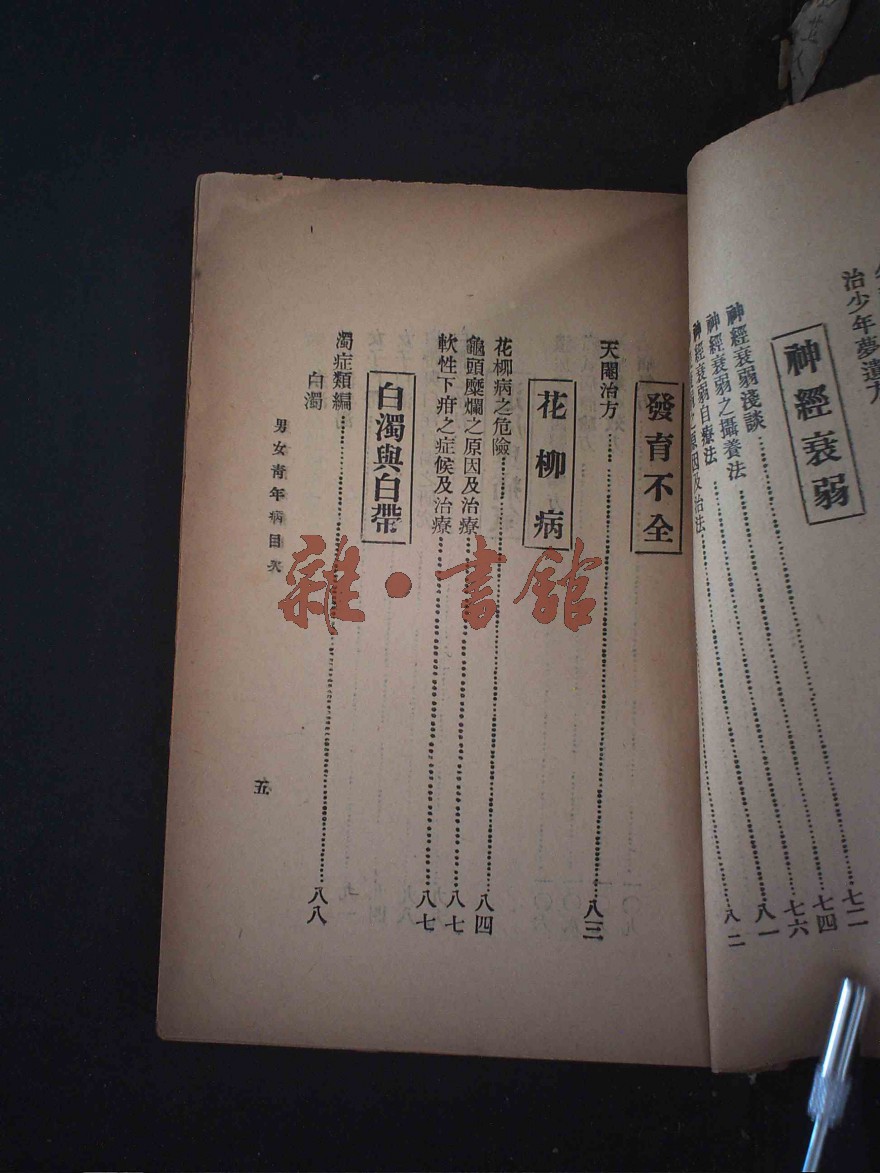 治少年夢遺方……七二
神經衰弱
神經衰弱淺談……七四
神經衰弱之攝養法……七六
神經衰弱自療法……八一
八二
發育不全
天閹治方……八三
花柳病
花柳病之危險……八四
龜頭糜爛之原因及治療……八七
軟性下疳之症候及治療……八七
白濁與白帶
濁症類編……八八
白濁
男女青年病目次
五
雜·書館